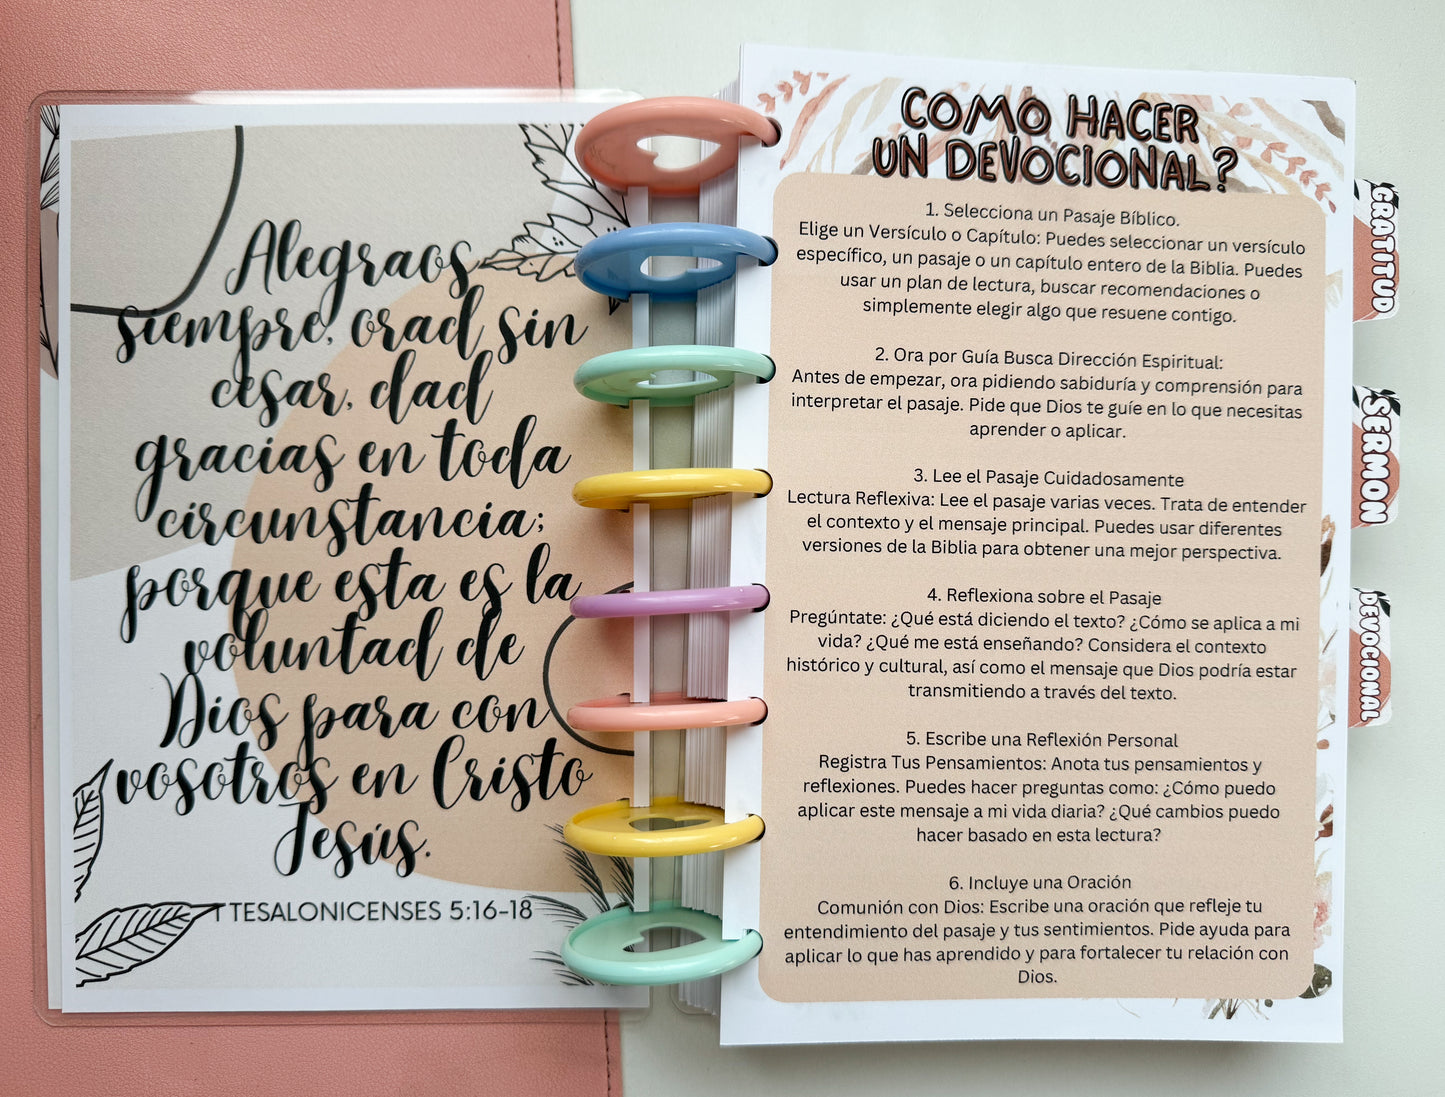 Alegraos
siempre, orad sin
cesar, dad
gracias en toda
circunstancia;
porque esta es la
voluntad de
Dios para con
vosotros en Cristo
Jesús.
1 TESALONICENSES 5:16-18
COMO HACER
UN DEVOCIONAL?
1. Selecciona un Pasaje Bíblico.
Elige un Versículo o Capítulo: Puedes seleccionar un versículo
específico, un pasaje o un capítulo entero de la Biblia. Puedes
usar un plan de lectura, buscar recomendaciones o
simplemente elegir algo que resuene contigo.
2. Ora por Guía Busca Dirección Espiritual:
Antes de empezar, ora pidiendo sabiduría y comprensión para
interpretar el pasaje. Pide que Dios te guíe en lo que necesitas
aprender o aplicar.
3. Lee el Pasaje Cuidadosamente
Lectura Reflexiva: Lee el pasaje varias veces. Trata de entender
el contexto y el mensaje principal. Puedes usar diferentes
versiones de la Biblia para obtener una mejor perspectiva.
4. Reflexiona sobre el Pasaje
Pregúntate: ¿Qué está diciendo el texto? ¿Cómo se aplica a mi
vida? ¿Qué me está enseñando? Considera el contexto
histórico y cultural, así como el mensaje que Dios podría estar
transmitiendo a través del texto.
5. Escribe una Reflexión Personal
Registra Tus Pensamientos: Anota tus pensamientos y
reflexiones. Puedes hacer preguntas como: ¿Cómo puedo
aplicar este mensaje a mi vida diaria? ¿Qué cambios puedo
hacer basado en esta lectura?
6. Incluye una Oración
Comunión con Dios: Escribe una oración que refleje tu
entendimiento del pasaje y tus sentimientos. Pide ayuda para
aplicar lo que has aprendido y para fortalecer tu relación con
Dios.
GRATITUD
SERMON
DEVOCIONAL